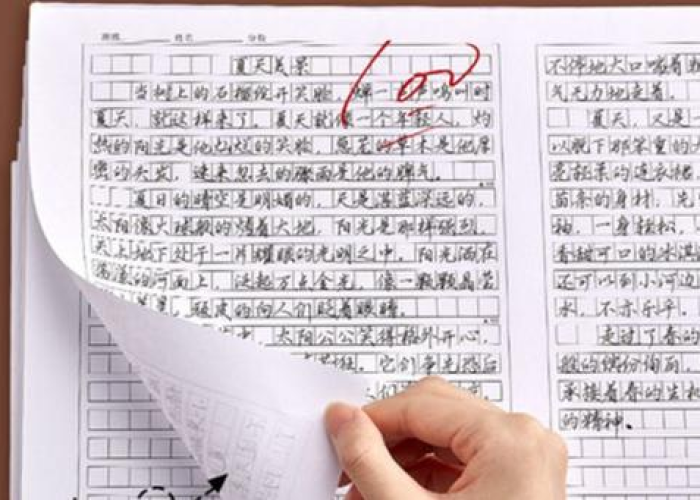 班级 姓名 分数
100
夏天美景
当树上的石榴绽开笑脸,蝉一声鸣叫时
夏天,就这样来了。夏天就像一个年轻人,灼
热的阳光是他灿烂的笑脸,葱茏的草木是他厚
密的头发,速来忽去的骤雨是他的脾气。
夏日的晴空是明媚的,天是湛蓝深远的,
太阳像火球般的烧着大地,阳光是那样强烈,
天上地下处于一片耀眼的光明之中,阳光洒在
荡漾的河面上,泛起万点金光,像一颗颗晶莹
顽皮的向人们眨着眼睛。
太阳公公笑得格外开心,
它们争先恐后
人们
不停地大口喘着
气无力地走着。
夏天,又是
以脱下那笨重的
亮轻柔的连衣裙
苗条的身材,
袖,一身轻松,
香甜可口的冰淇
还可以到小河边
水,不亦乐乎。
走过了春的
般的缤纷绚丽,
承接着春的生机
的精神。